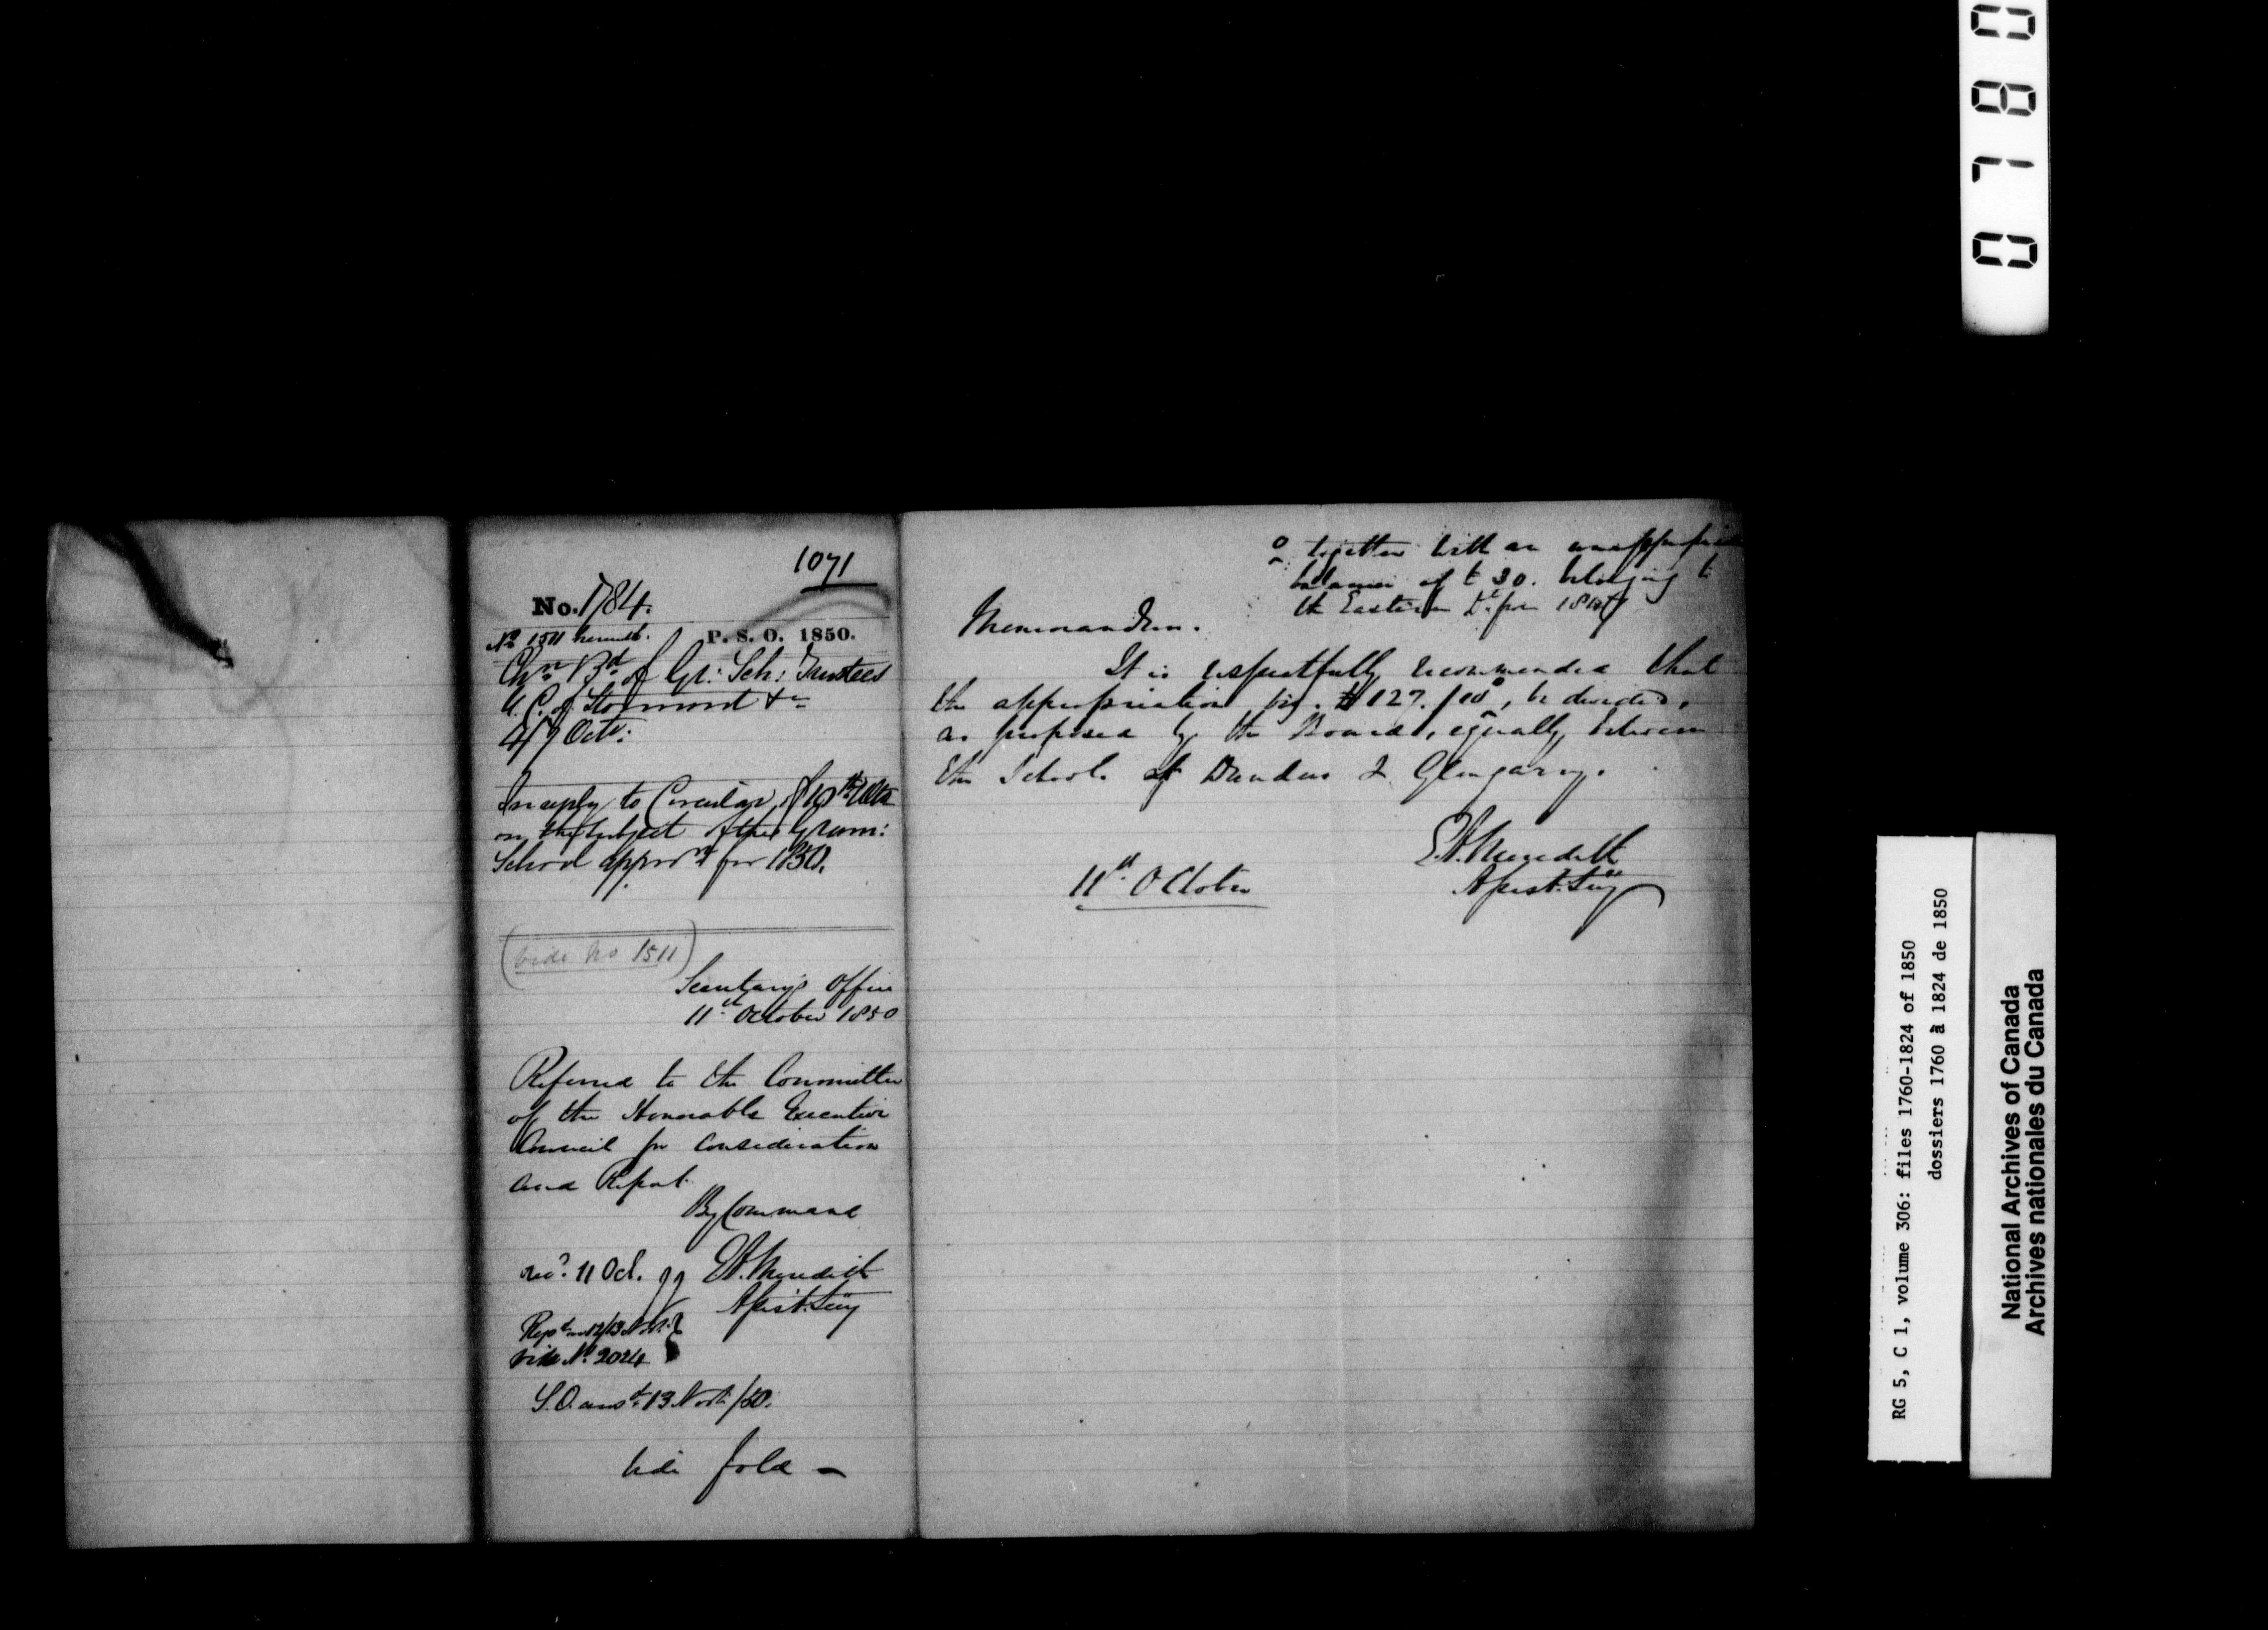 1071
No. 1784.
No 1511 herewith.
P. S. O. 1850.
Chn Bd of Gr: Sch: Trustees
U. C. of Stormont &c
4/9 Octr:
In reply to Circular of 10th Ulto
on the subject of the Gram:
School approrn for 1850.
(vide No 1511)
Secretary's Office
11th October 1850
Referred to the Committee
of the Honorable Executive
Council for Consideration
and Report.
By Command
E.A. Meredith
Assist. Secy
Recd. 11 Oct.
Repd on 12/13 Novr.
Vide No. 2024
S.O. ansd. 13 Novr /50.
vide fold —
together with an unappropriated
balance of £30. belonging to
the Eastern Dt. for 1849
Memorandum.
It is respectfully recommended that
the appropriation viz. £127. /10, be divided,
as proposed by the Board, equally between
the Schools of Dundas & Glengarry.
E.A. Meredith
Assist. Secy
11th October
0780
RG 5, C 1, volume 306: files 1760-1824 of 1850
dossiers 1760 à 1824 de 1850
National Archives of Canada
Archives nationales du Canada